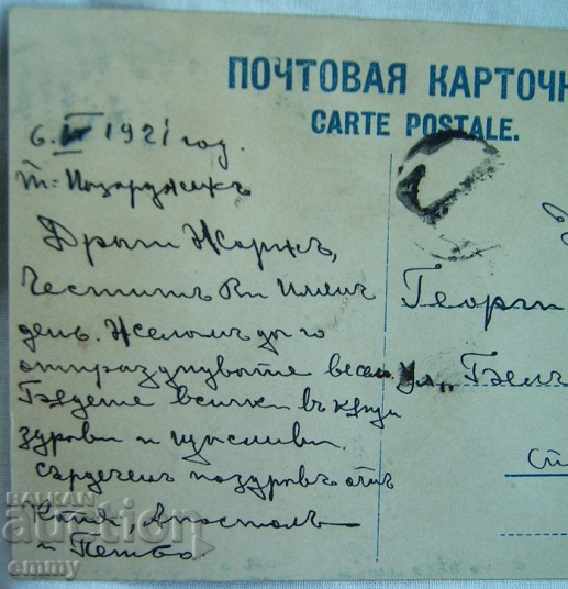 ПОЧТОВАЯ КАРТОЧК
CARTE POSTALE.
6. IV 1921 год.
т: Пазарджикъ
Драги Жоржъ,
Честитъ Ви имен
день. Желаемъ да го
отпразднувате весел.
Бъдете всички въ кѫщи
здрави и щѫсливи.
Сърдеченъ поздравъ отъ
Катя, Апостолъ
и Петко
Георги
Ул „
BALKAN
auction
emmy